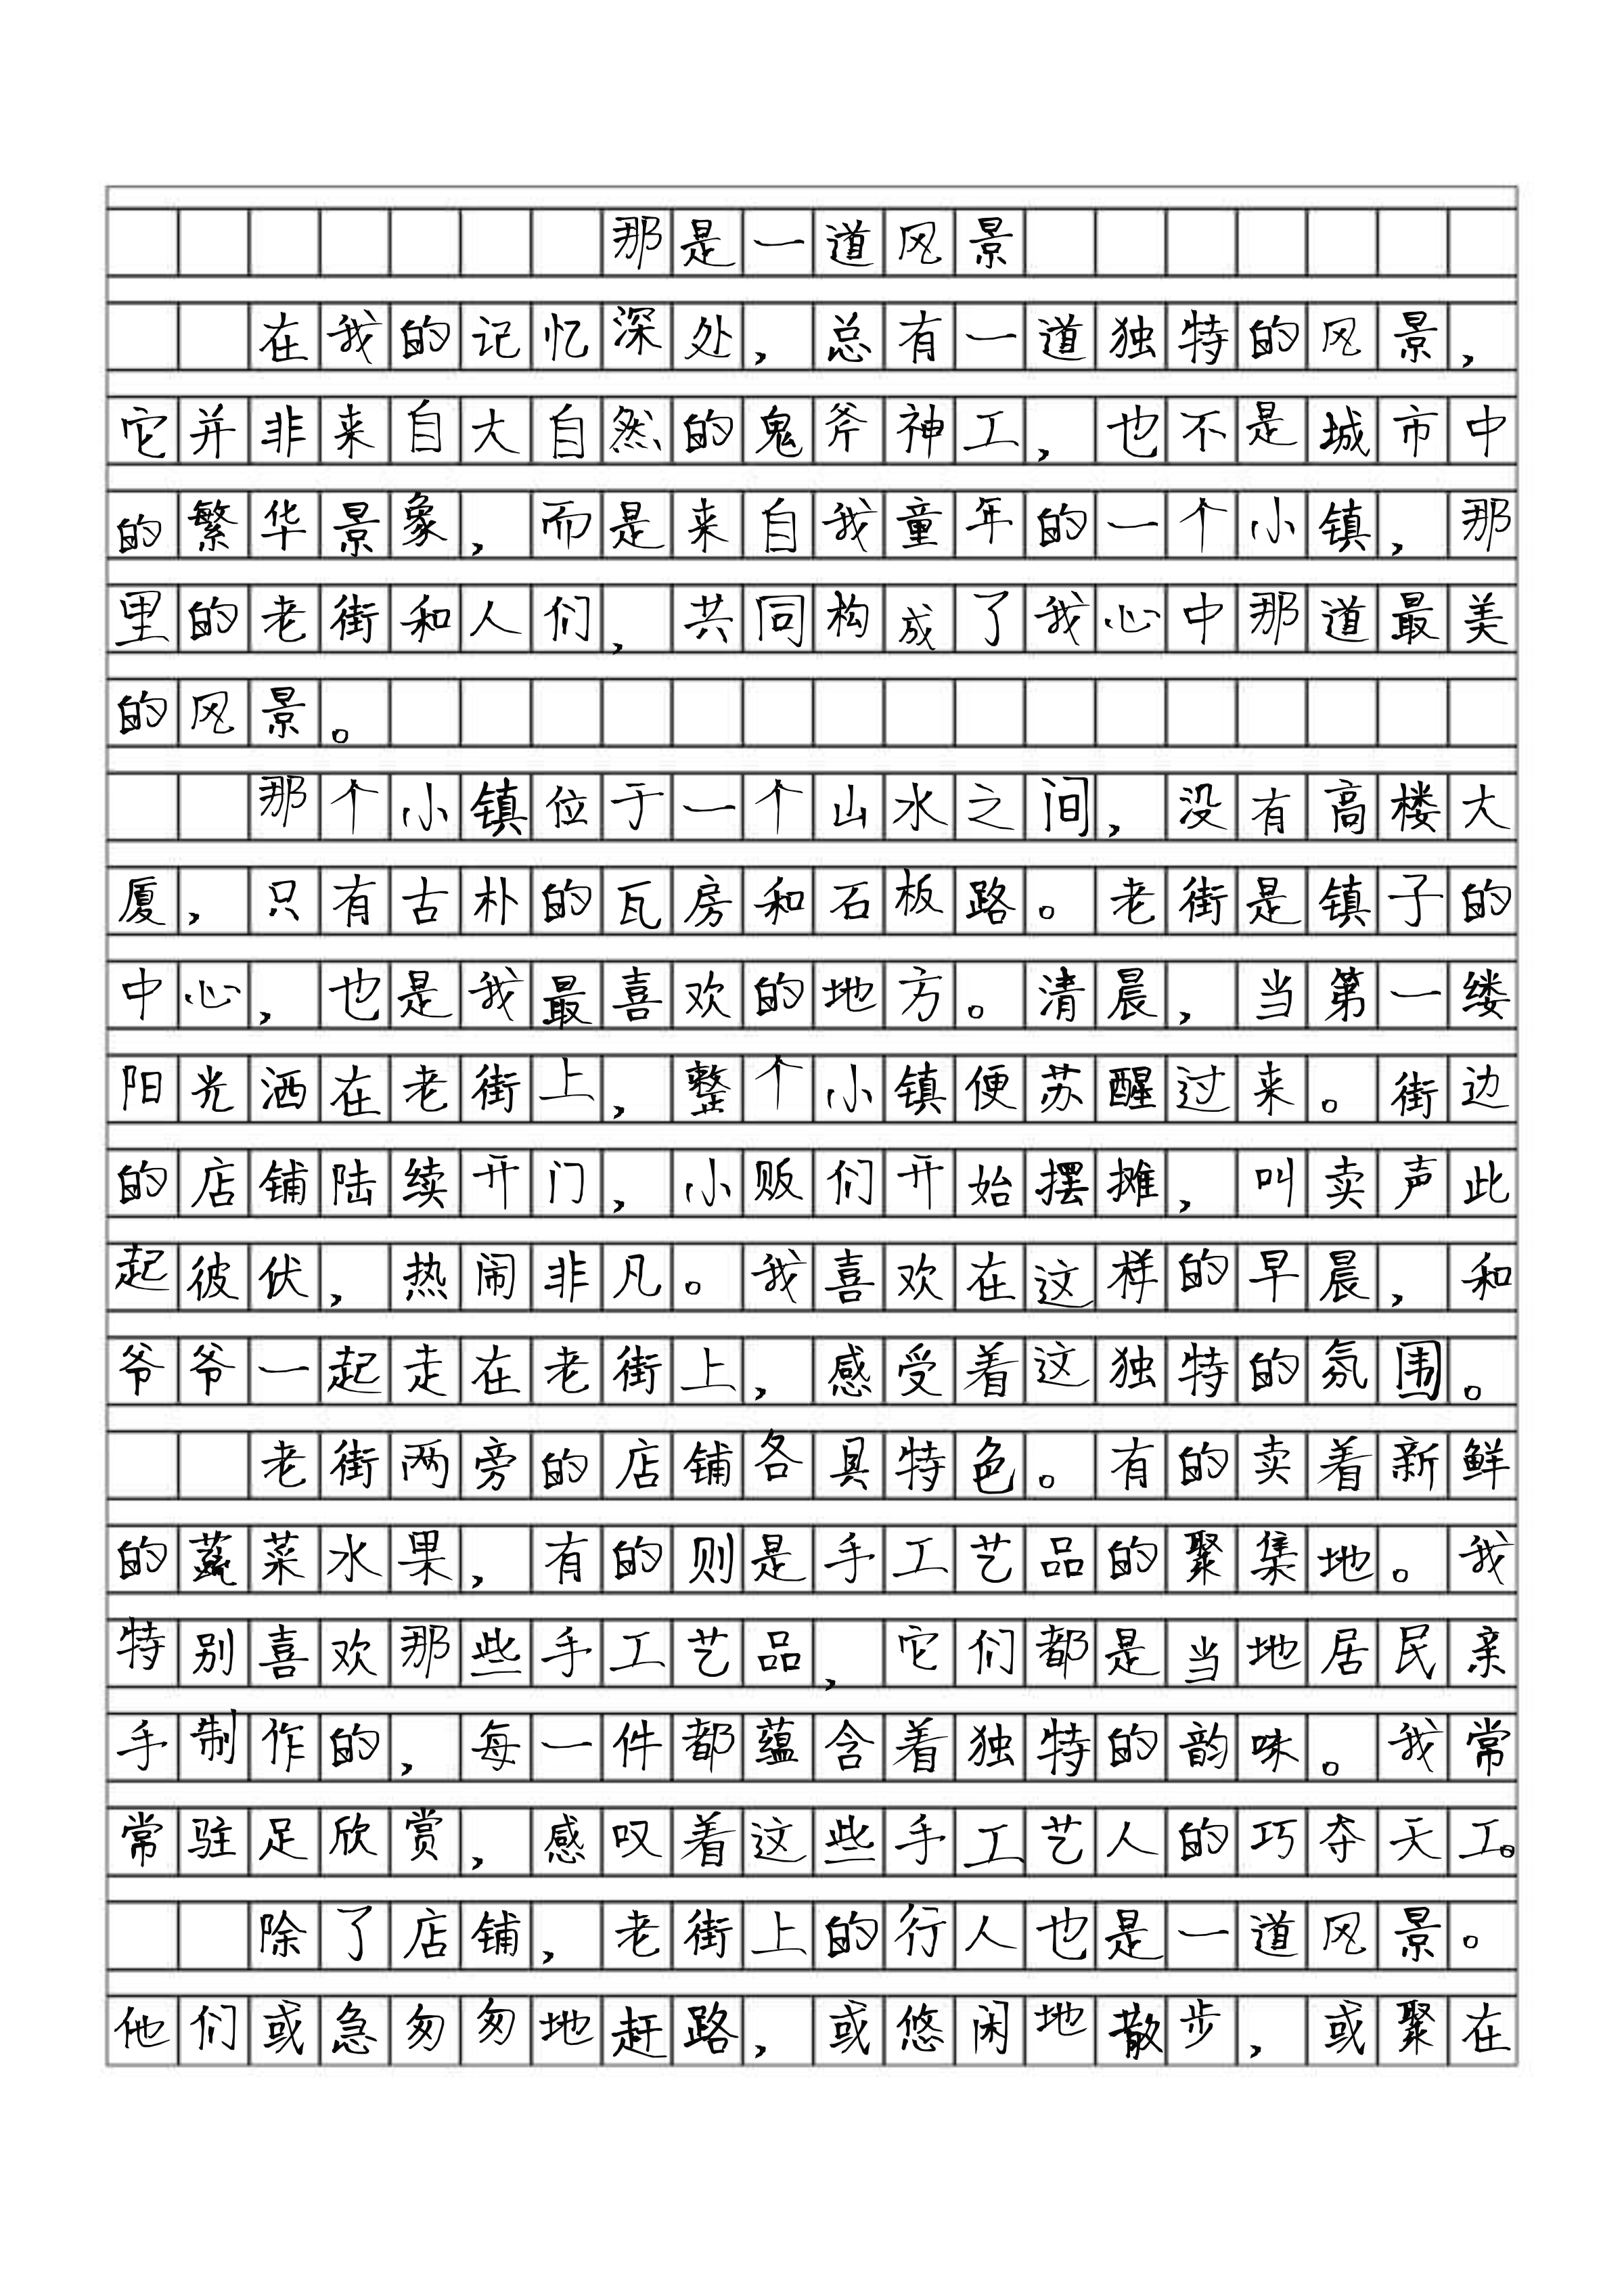 那是一道风景
在我的记忆深处，总有一道独特的风景，
它并非来自大自然的鬼斧神工，也不是城市中
的繁华景象，而是来自我童年的一个小镇，那
里的老街和人们，共同构成了我心中那道最美
的风景。
那个小镇位于一个山水之间，没有高楼大
厦，只有古朴的瓦房和石板路。老街是镇子的
中心，也是我最喜欢的地方。清晨，当第一缕
阳光洒在老街上，整个小镇便苏醒过来。街边
的店铺陆续开门，小贩们开始摆摊，叫卖声此
起彼伏，热闹非凡。我喜欢在这样的早晨，和
爷爷一起走在老街上，感受着这独特的氛围。
老街两旁的店铺各具特色。有的卖着新鲜
的蔬菜水果，有的则是手工艺品的聚集地。我
特别喜欢那些手工艺品，它们都是当地居民亲
手制作的，每一件都蕴含着独特的韵味。我常
常驻足欣赏，感叹着这些手工艺人的巧夺天工。
除了店铺，老街上的行人也是一道风景。
他们或急匆匆地赶路，或悠闲地散步，或聚在